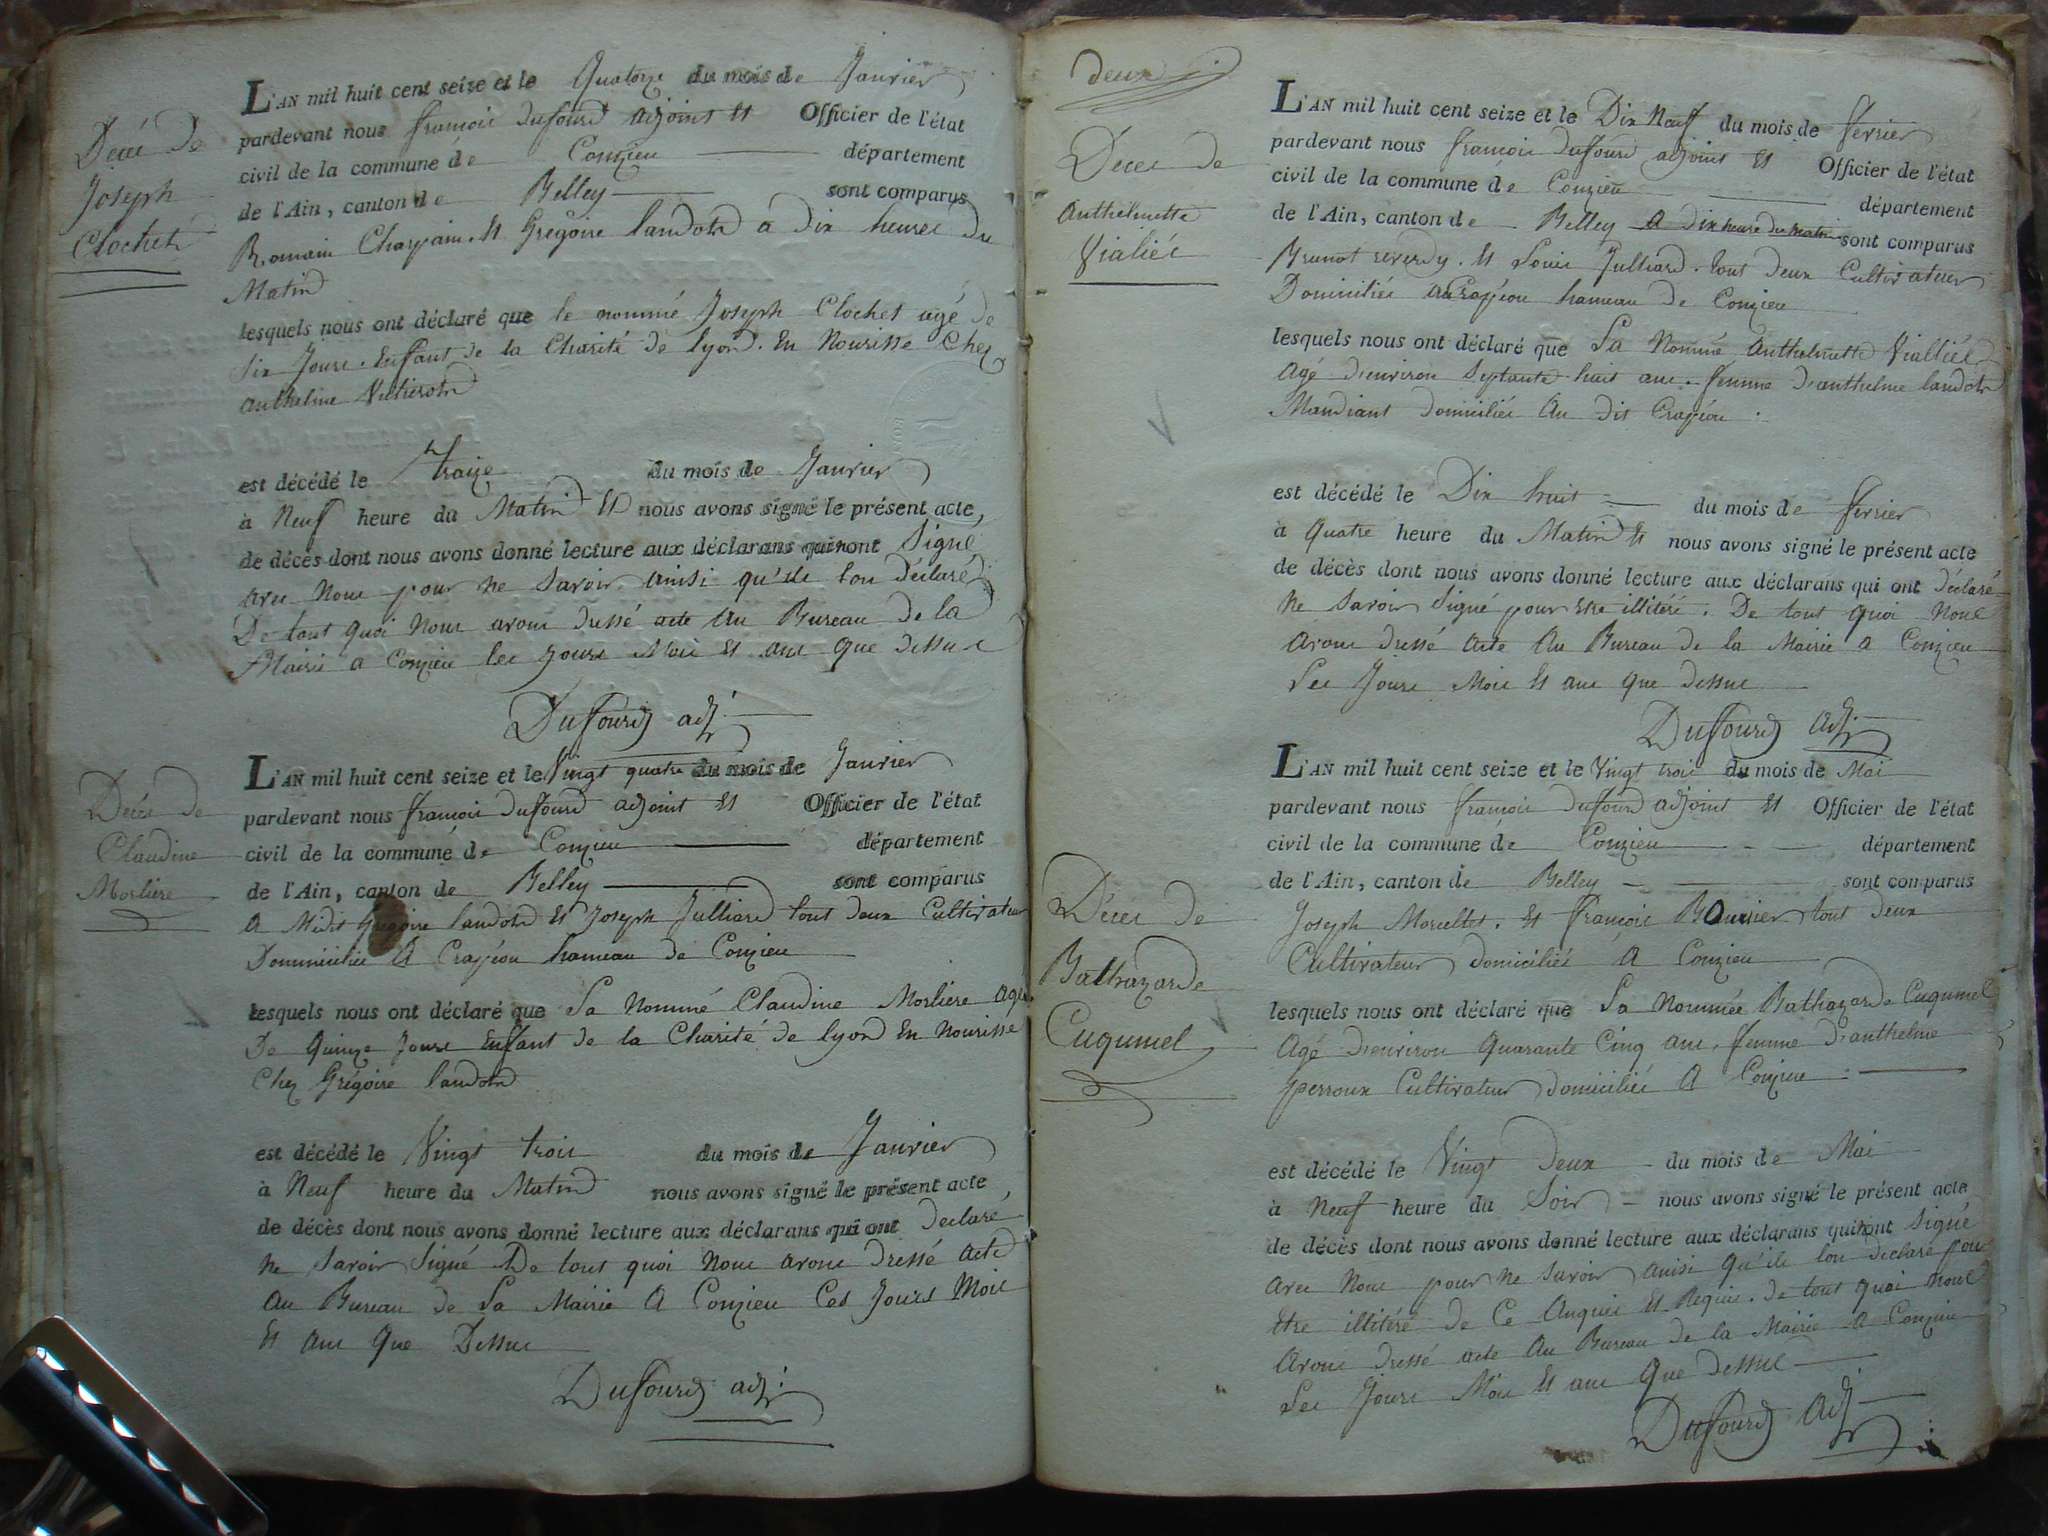 Décé de
Joseph
Clochet
L'AN mil huit cent seize et le Quatorze du mois de Janvier
pardevant nous francois dufourd adjoint et Officier de l'état
civil de la commune de Conzieu département
de l'Ain, canton de Belley sont comparus
Romain Charpain et Grégoire landot a dix heures du
Matin
lesquels nous ont déclaré que le nommé Joseph Clochet agé de
Six Jours. Enfant de la Charité de lyon. En Nourisse Chez
anthelme
est décédé le traize du mois de Janvier
à Neuf heure du Matin Et nous avons signé le présent acte,
de décès dont nous avons donné lecture aux déclarans qui nont Signé
avec Nous pour ne Savoir ainsi qu'ils lon déclaré
De tout quoi Nous avons dressé acte Au Bureau de la
Mairie a Conzieu les Jours Mois Et ans que dessus
Dufourd adj.
Décés de
Claudine
Morliere
L'AN mil huit cent seize et le Vingt quatre du mois de Janvier
pardevant nous francois dufourd adjoint Et Officier de l'état
civil de la commune de Conzieu département
de l'Ain, canton de Belley sont comparus
A Midi Grégoire landot Et Joseph Julliard tous deux Cultivateur
Dommiciliés A Crapéou hameau de Conzieu
lesquels nous ont déclaré que La Nommé Claudine Morliere Agé
De Quinze Jours Enffant de la Charité de lyon En Nourisse
Chez Grégoire landot
est décédé le Vingt trois du mois de Janvier
à Neuf heure du Matin nous avons signé le présent acte
de décès dont nous avons donné lecture aux déclarans qui ont Declaré
ne Savoir Signé De tout quoi Nous avons dressé acte
Au Bureau de La Mairie A Conzieu Ces Jours Mois
Et ans Que Dessus
Dufourd adj.
deux
Déces de
Anthelmette
Vialiés
L'AN mil huit cent seize et le Dix Neuf du mois de fevrier
pardevant nous francois Dufourd adjoint Et Officier de l'état
civil de la commune de Conzieu département
de l'Ain, canton de Belley A Dix heure du Matin sont comparus
Brunot réverdy. Et Louis Julliard. tout deux Cultivateur
Domiciliés au Crapéou hameau de Conzieu
lesquels nous ont déclaré que La Nommé Anthelmette Vialliés
Agé d'environ Septante huit ans. femme d'anthelme landot
Mandiant domiciliés Au dit Crapéou
est décédé le Dix huit du mois de fevrier
à Quatre heure du Matin Et nous avons signé le présent acte
de décès dont nous avons donné lecture aux déclarans qui ont déclaré
Ne Savoir Signé pour Etre illitéré. De tout quoi Nous
Avons dressé Acte Au Bureau de la Mairie a Conzieu
Les Jours Mois Et ans Que dessus
Dufourd Adj.
Déces de
Balthazarde
Cugumel
L'AN mil huit cent seize et le Vingt trois du mois de Mai
pardevant nous francois dufourd adjoint Et Officier de l'état
civil de la commune de Conzieu département
de l'Ain, canton de Belley sont comparus
Joseph Morcellet. Et françois Bouvier tout deux
Cultivateur domiciliés A Conzieu
lesquels nous ont déclaré que La Nommée Bathazarde Cugumel
Agé d'environ Quarante Cinq ans, femme d'anthelme
perroux Cultivateur domiciliés A Conzieu
est décédé le Vingt Deux du mois de Mai
à Neuf heure du Soir nous avons signé le présent acte
de décès dont nous avons donné lecture aux déclarans qui nont Signé
avec Nous pour ne Savoir ainsi qu'ils lon déclaré pour
Etre illitéré de Ce Enquis Et Requis. de tout quoi nous
Avons dressé acte Au Bureau de la Mairie A Conzieu
Les Jours Mois Et ans Que dessus
Dufourd Adj.